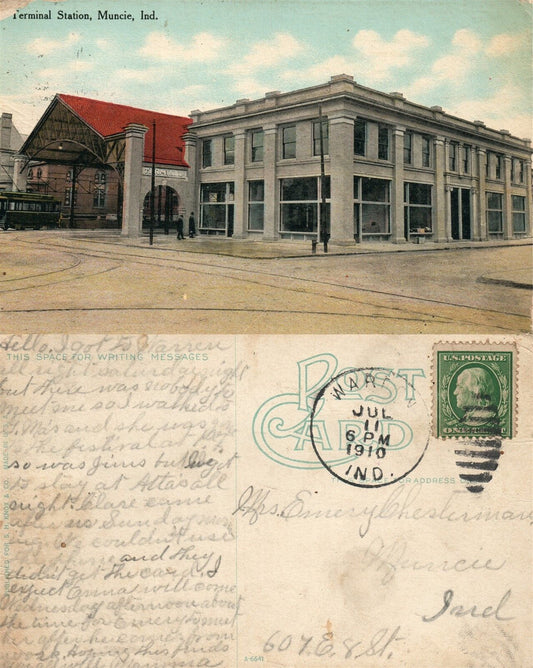 Terminal Station, Muncie, Ind.
Hello, I got to Warren
THIS SPACE FOR WRITING MESSAGES
all right on Saturday night
but there was nobody to
meet me so I walked
and she was
the festival
so was Jims but I got
to stay at Altas all
night. Clare came
after us Sunday
couldn't use
and they
didn't get the card. I
expect Anna will come
Wednesday afternoon about
the time for Emery to meet
her after he comes from
work hoping this finds
POST
CARD
FOR ADDRESS
WARREN
JUL
11
6 PM
1910
IND.
U.S. POSTAGE
Mrs. Emery Chesterman
Muncie
Ind
607 E. 8 St.
A-6641